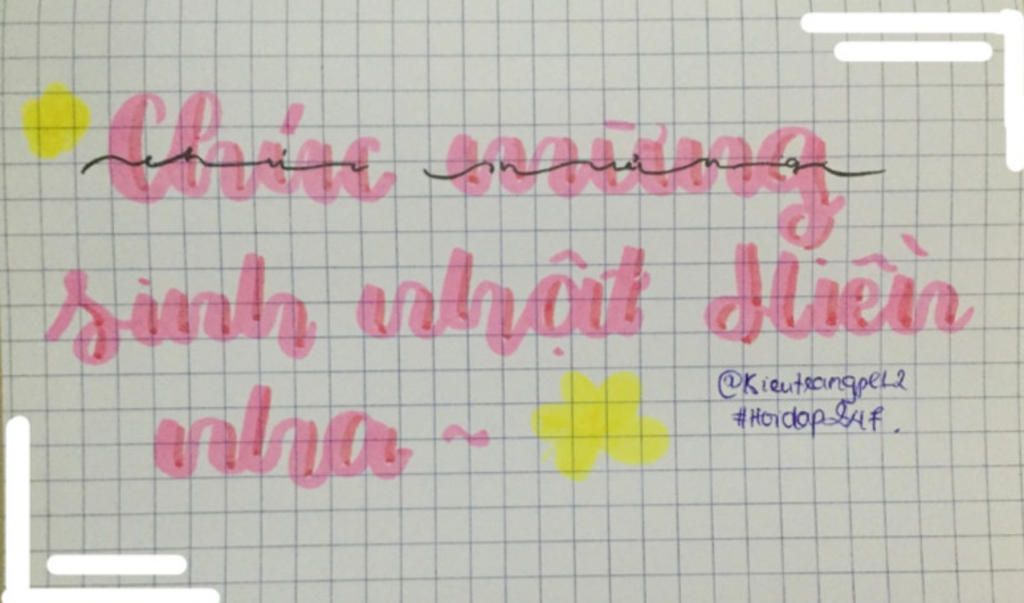 Chúc mừng
chúc mừng
sinh nhật Hiền
nha ~
@Kieutrangpel2
#Hoidap247.